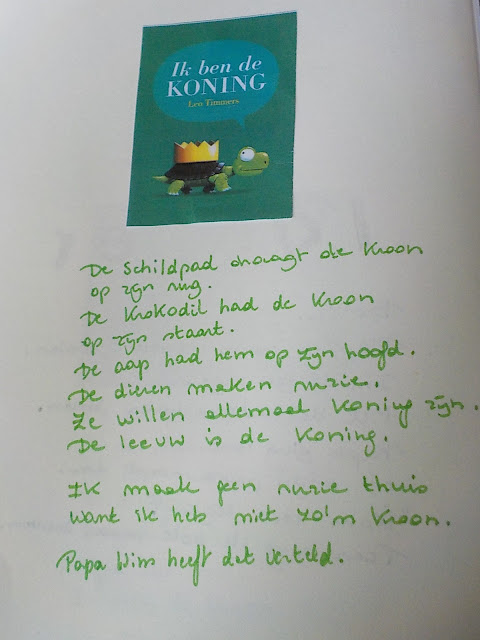 Ik ben de
KONING
Leo Timmers
De Schildpad draagt de Kroon
op zijn rug.
De Krokodil had de Kroon
op zijn staart.
De aap had hem op zijn hoofd.
De dieren maken ruzie.
Ze willen allemaal Koning zijn.
De leeuw is de Koning.
Ik maak geen ruzie thuis
want ik heb niet zo'n Kroon.
Papa Wim heeft dat verteld.